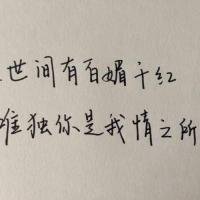 世间有百媚千红
唯独你是我情之所